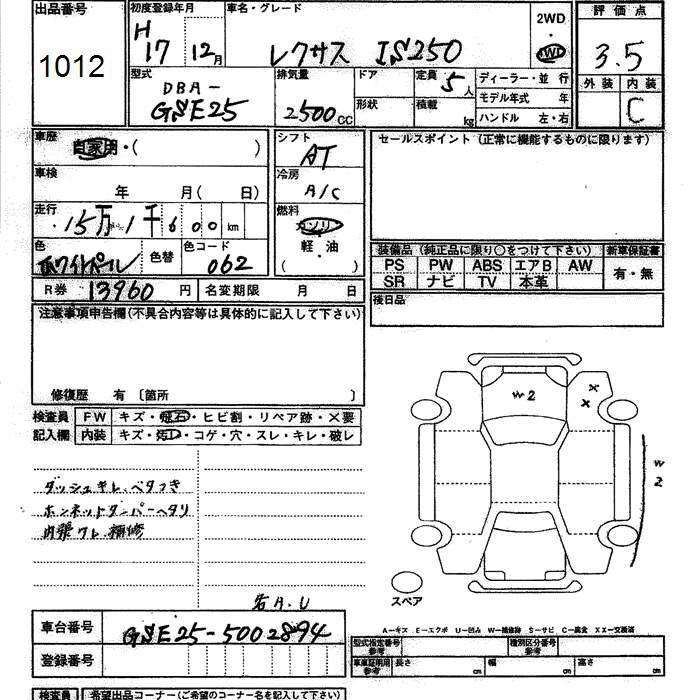 出品番号 初度登録年月 車名・グレード 2WD・4WD 評価点
1012 H17 12月 レクサス IS250 3.5
型式 DBA-GSE25 排気量 2500cc ドア 形状 定員 5人 積載 kg ディーラー・並行 外装 内装 C
モデル年式 年
ハンドル 左・右
車歴 自家用・( )
シフト AT
セールスポイント(正常に機能するものに限ります)
車検 年 月( 日)
冷房 A/C
走行 15万1千600km
燃料 ガソリン
軽・油
( )
色 ホワイトパール 色替 色コード 062
装備品(純正品に限り○をつけて下さい) 新車保証書
PS PW ABS エアB AW 有・無
SR ナビ TV 本革
R券 13960円 名変期限 月 日
後日品
注意事項申告欄(不具合内容等は具体的に記入して下さい)
修復歴 有 〔箇所 〕
検査員 FW キズ・飛石・ヒビ割・リペア跡・×要
記入欄 内装 キズ・汚れ・コゲ・穴・スレ・キレ・破レ
W2
× ×
W2
ダッシュキレ、ベタつき
ボンネットダンパーヘタリ
内張ワレ、補修
右A.U
スペア
車台番号 GSE25-5002894
登録番号
A-キズ E-エクボ U-凹み W-補修跡 S-サビ C-腐食 XX-交換済
型式指定番号 参考 種別区分番号 参考
車庫証明用 参考 長さ cm 幅 cm 高さ cm
検査員 希望出品コーナー(ご希望のコーナー名を記入して下さい)